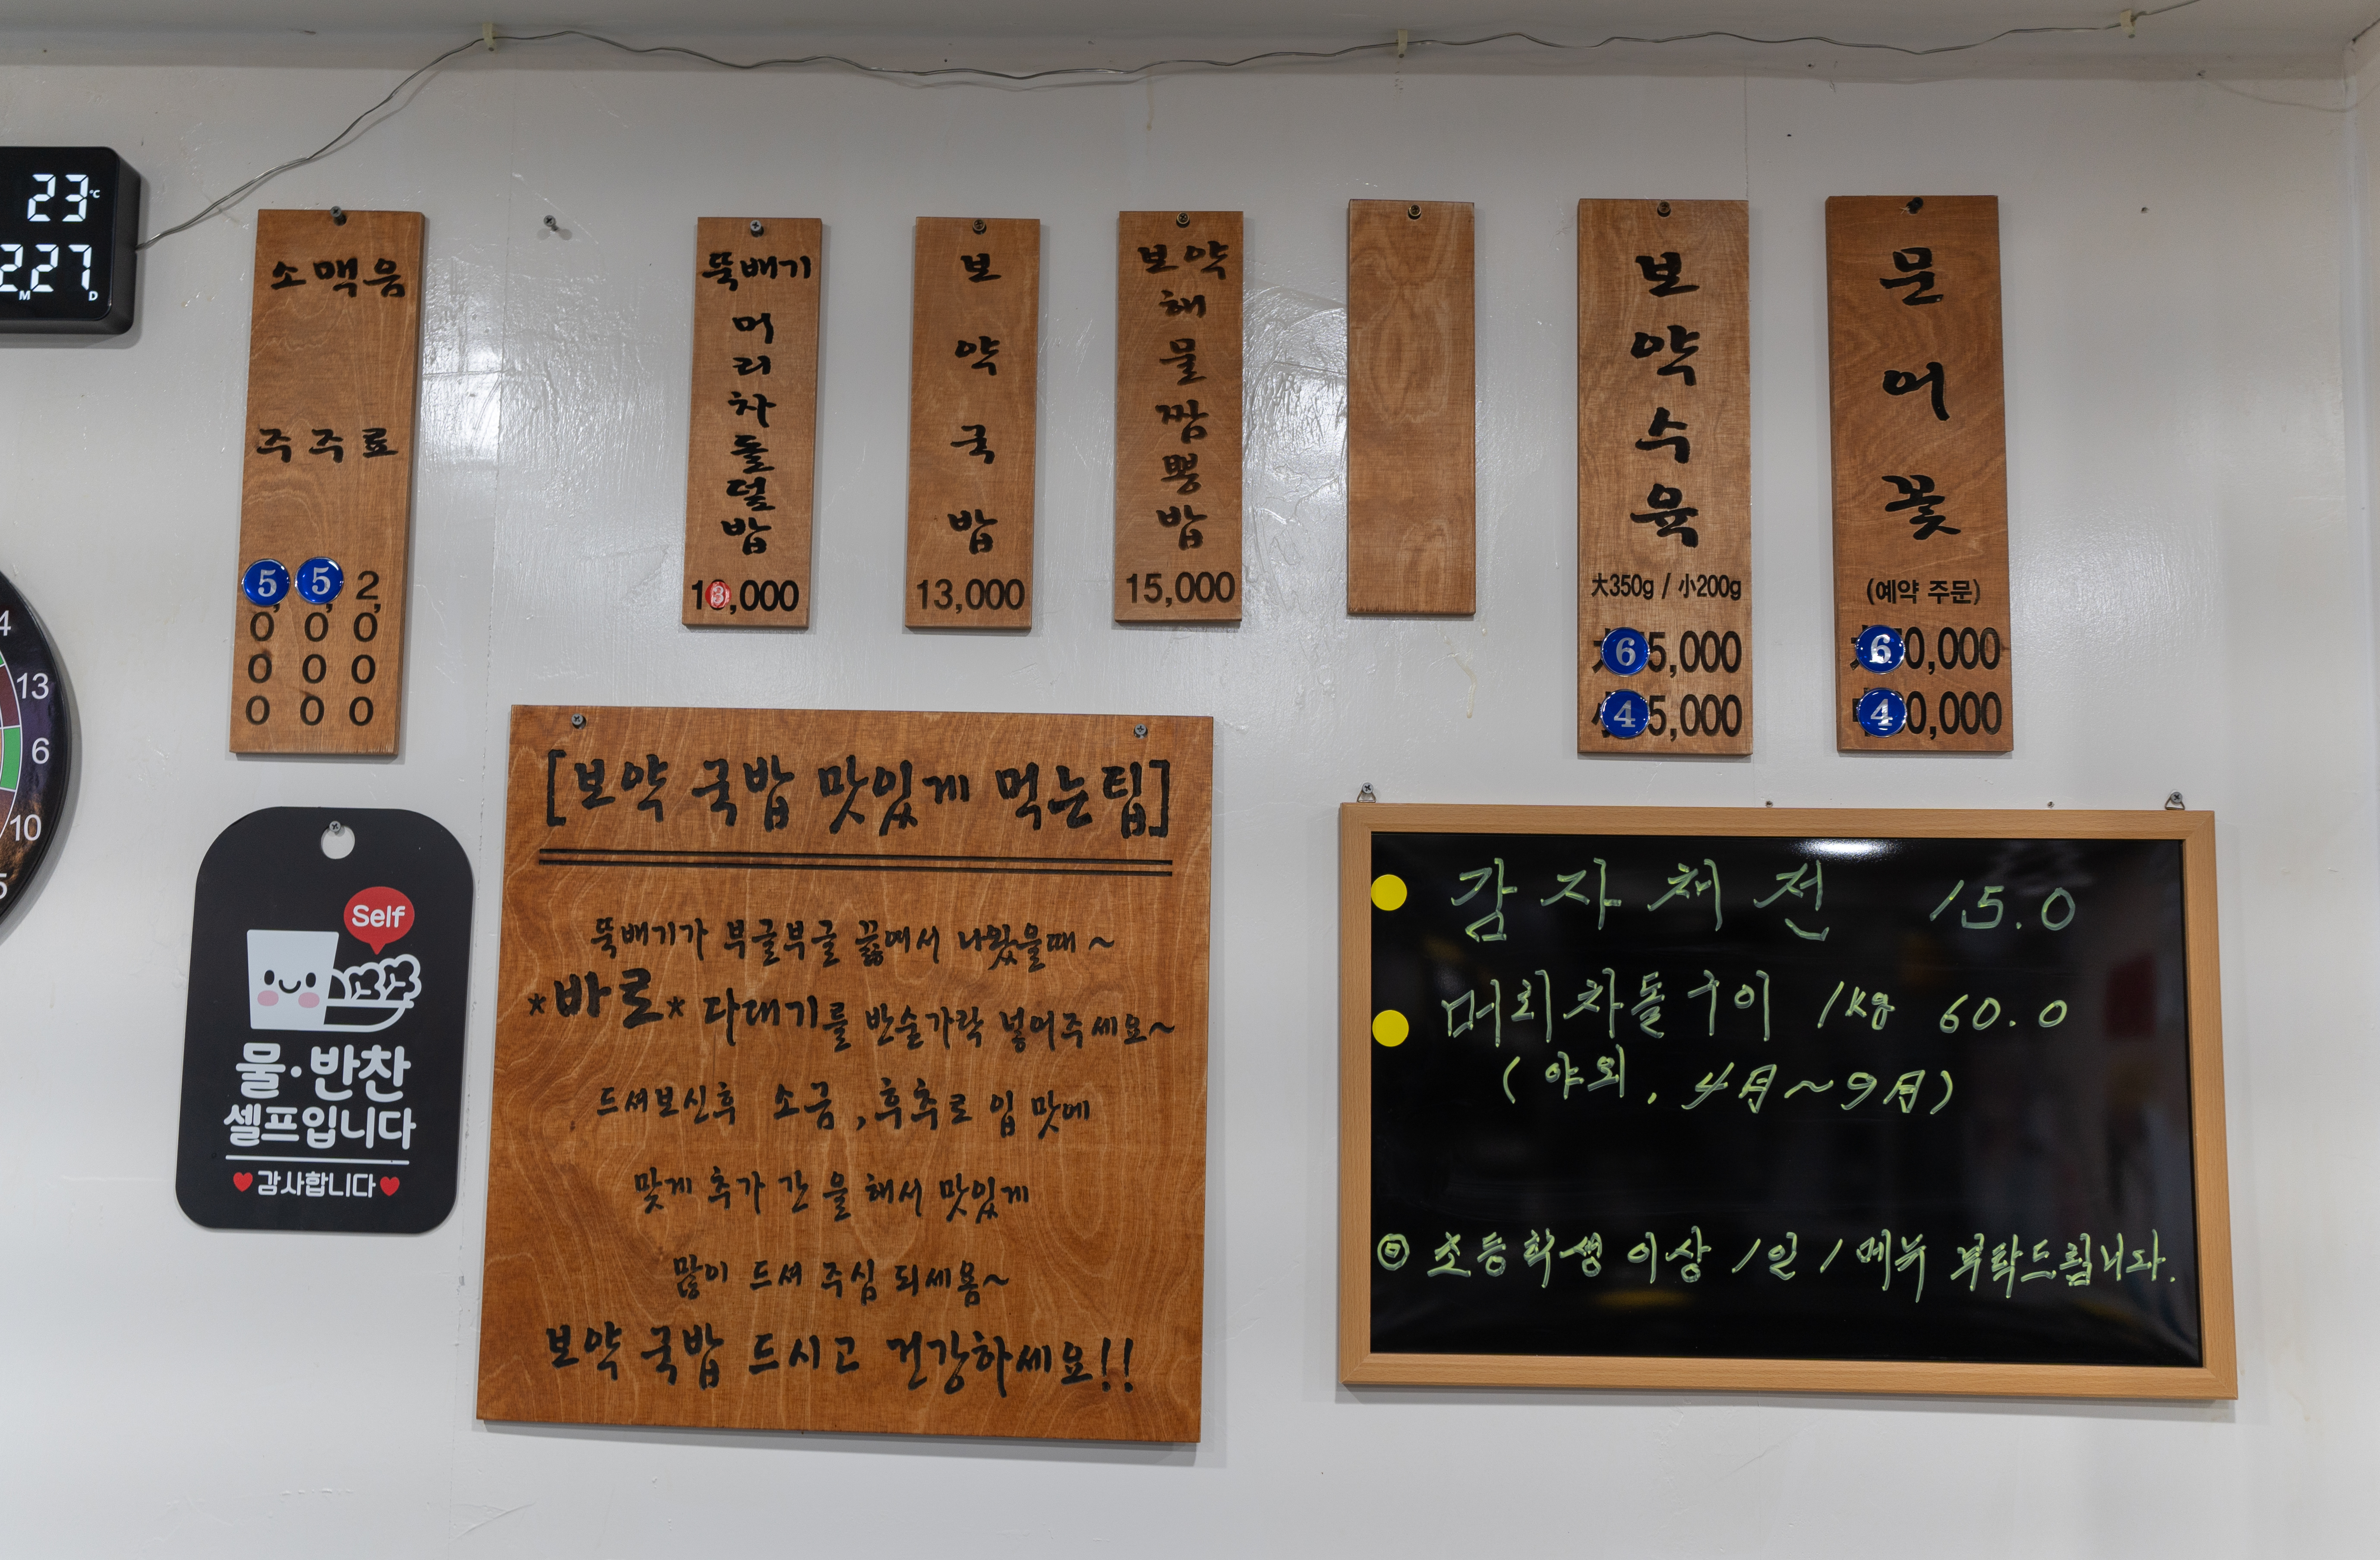 23°C
2.27
M D
소맥음
주주료
5, 5, 2,
0 0 0
0 0 0
0 0 0
뚝배기
머
리
차
돌
덮
밥
13,000
보
약
국
밥
13,000
보약
해
물
짬
뽕
밥
15,000
보
약
수
육
大350g / 小200g
65,000
45,000
문
어
꽃
(예약 주문)
60,000
40,000
4
13
6
10
5
Self
물·반찬
셀프입니다
감사합니다
[보약 국밥 맛있게 먹는팁]
뚝배기가 부글부글 끓에서 나왔을때~
*바로* 다대기를 반숟가락 넣어주세요~
드셔보신후 소금,후추로 입 맛에
맞게 추가 간 을 해서 맛있게
많이 드셔 주심 되세욤~
보약 국밥 드시고 건강하세요!!
감자채전 15.0
머리차돌구이 1kg 60.0
(야외, 4月~9月)
◎ 초등학생 이상 1인 1메뉴 부탁드립니다.